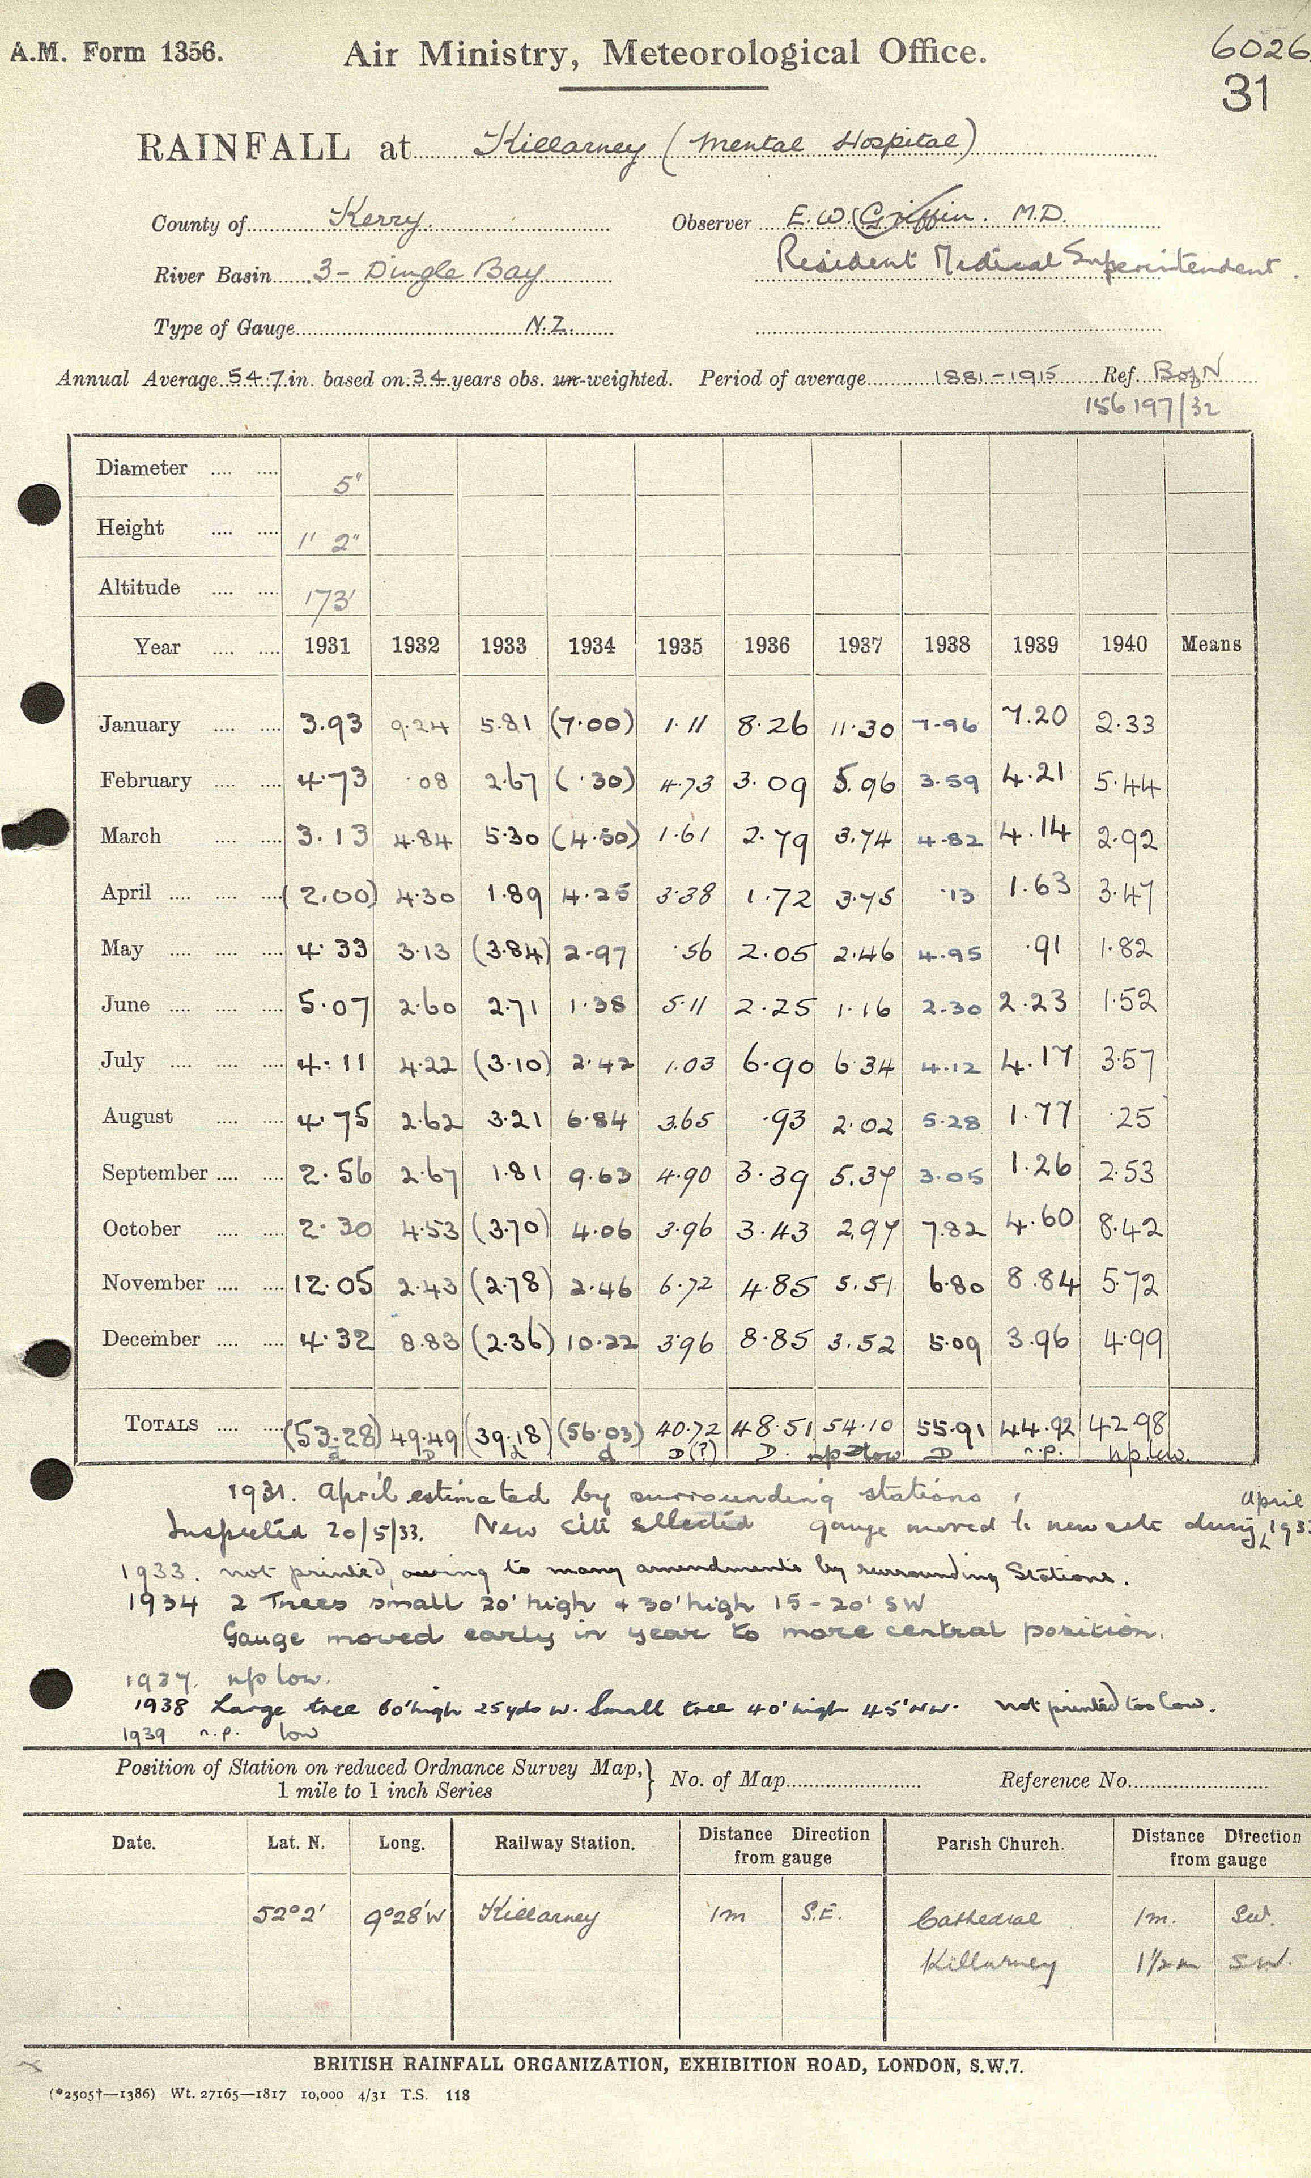 A.M. Form 1356. Air Ministry, Meteorological Office. 6026
31
RAINFALL at Killarney (Mental Hospital)
County of Kerry. Observer E.W. Griffin. M.D.
River Basin 3 - Dingle Bay Resident Medical Superintendent.
Type of Gauge N.Z.
Annual Average 54.7 in. based on 34 years obs. un-weighted. Period of average 1881-1915 Ref. B of N
156197/32
Diameter 5"
Height 1' 2"
Altitude 173'
Year 1931 1932 1933 1934 1935 1936 1937 1938 1939 1940 Means
January 3.93 9.24 5.81 (7.00) 1.11 8.26 11.30 7.96 7.20 2.33
February 4.73 .08 2.67 (.30) 4.73 3.09 5.96 3.59 4.21 5.44
March 3.13 4.84 5.30 (4.50) 1.61 2.79 3.74 4.82 4.14 2.92
April (2.00) 4.30 1.89 4.25 3.38 1.72 3.75 .13 1.63 3.47
May 4.33 3.13 (3.84) 2.97 .56 2.05 2.46 4.95 .91 1.82
June 5.07 2.60 2.71 1.38 5.11 2.25 1.16 2.30 2.23 1.52
July 4.11 4.22 (3.10) 2.42 1.03 6.90 6.34 4.12 4.17 3.57
August 4.75 2.62 3.21 6.84 3.65 .93 2.02 5.28 1.77 .25
September 2.56 2.67 1.81 9.63 4.90 3.39 5.37 3.05 1.26 2.53
October 2.30 4.53 (3.70) 4.06 3.96 3.43 2.97 7.82 4.60 8.42
November 12.05 2.43 (2.78) 2.46 6.72 4.85 5.51 6.80 8.84 5.72
December 4.32 8.83 (2.36) 10.22 3.96 8.85 3.52 5.09 3.96 4.99
TOTALS (53.28) 49.49 (39.18) (56.03) 40.72 48.51 54.10 55.91 44.92 42.98
d D d d D(?) D. np low D n.p. np low.
1931. April estimated by surrounding stations,
Inspected 20/5/33. New site selected gauge moved to new site during April 1933
1933. not printed, owing to many amendments by surrounding Stations.
1934 2 Trees small 20' high & 30' high 15-20' SW
Gauge moved early in year to more central position.
1937. np low.
1938 Large tree 60' high 25 yds W. Small tree 40' high 45' NW. not printed too low.
1939 n.p. low
Position of Station on reduced Ordnance Survey Map, } No. of Map Reference No.
1 mile to 1 inch Series
Date. Lat. N. Long. Railway Station. Distance Direction from gauge Parish Church. Distance Direction from gauge
52°2' 9°28'W Killarney 1m S.E. Cathedral 1m. SW.
Killarney 1½m SW.
BRITISH RAINFALL ORGANIZATION, EXHIBITION ROAD, LONDON, S.W.7.
(*2505†—1386) Wt. 27165—1817 10,000 4/31 T.S. 118